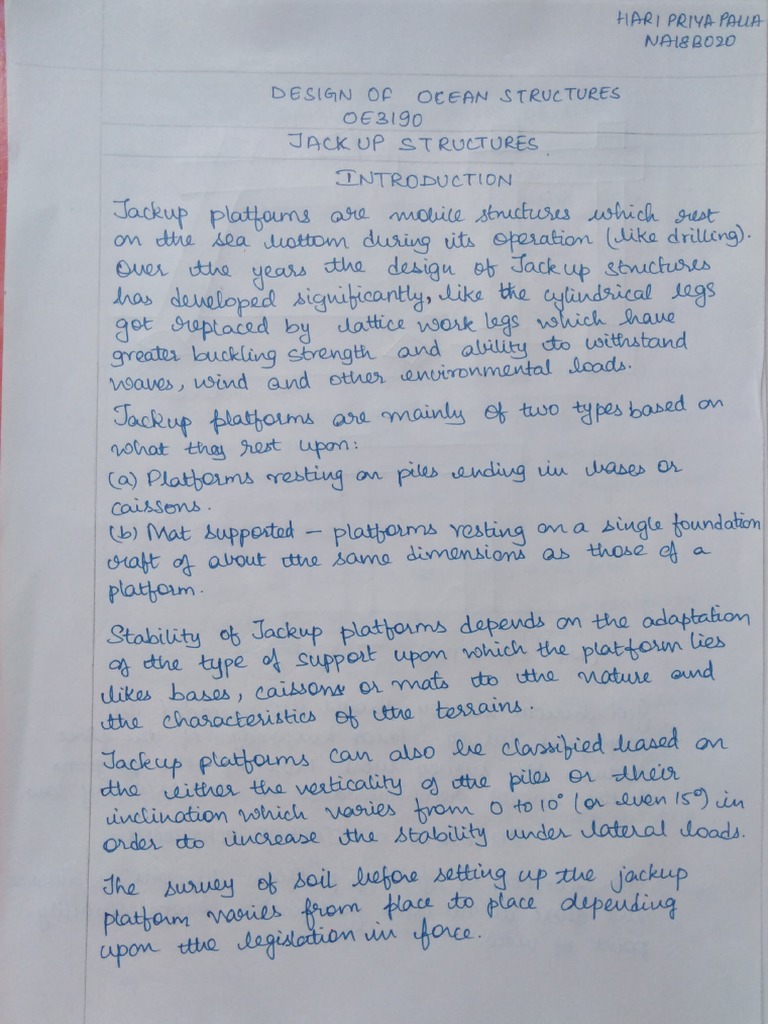 HARI PRIYA PALLA
NA18B020
DESIGN OF OCEAN STRUCTURES
OE3190
JACK UP STRUCTURES.
INTRODUCTION
Jackup platforms are mobile structures which rest
on the sea bottom during its operation (like drilling).
Over the years the design of Jack up structures
has developed significantly, like the cylindrical legs
got replaced by lattice work legs which have
greater buckling strength and ability to withstand
waves, wind and other environmental loads.
Jackup platforms are mainly of two types based on
what they rest upon:
(a) Platforms resting on piles ending in bases or
caissons.
(b) Mat supported - platforms resting on a single foundation
craft of about the same dimensions as those of a
platform.
Stability of Jackup platforms depends on the adaptation
of the type of support upon which the platform lies
likes bases, caissons or mats to the nature and
the characteristics of the terrains.
Jackup platforms can also be classified based on
the either the verticality of the piles or their
inclination which varies from 0 to 10° (or even 15°) in
order to increase the stability under lateral loads.
The survey of soil before setting up the jackup
platform varies from place to place depending
upon the legislation in force.